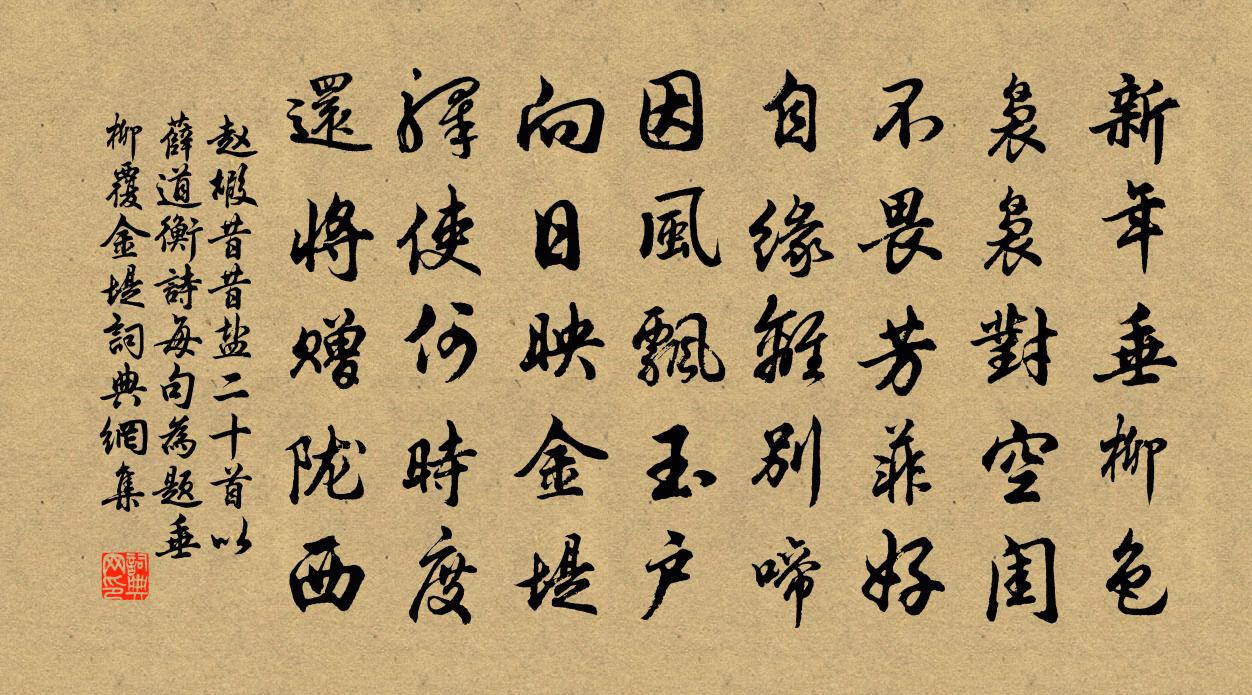 新年垂柳色
裊裊對空閨
不畏芳菲好
自緣離別啼
因風飄玉户
向日映金堤
驛使何時度
還將贈陇西
赵嘏昔昔盐二十首以
薛道衡詩每句為題垂
柳覆金堤詞典網集
詞典
网印